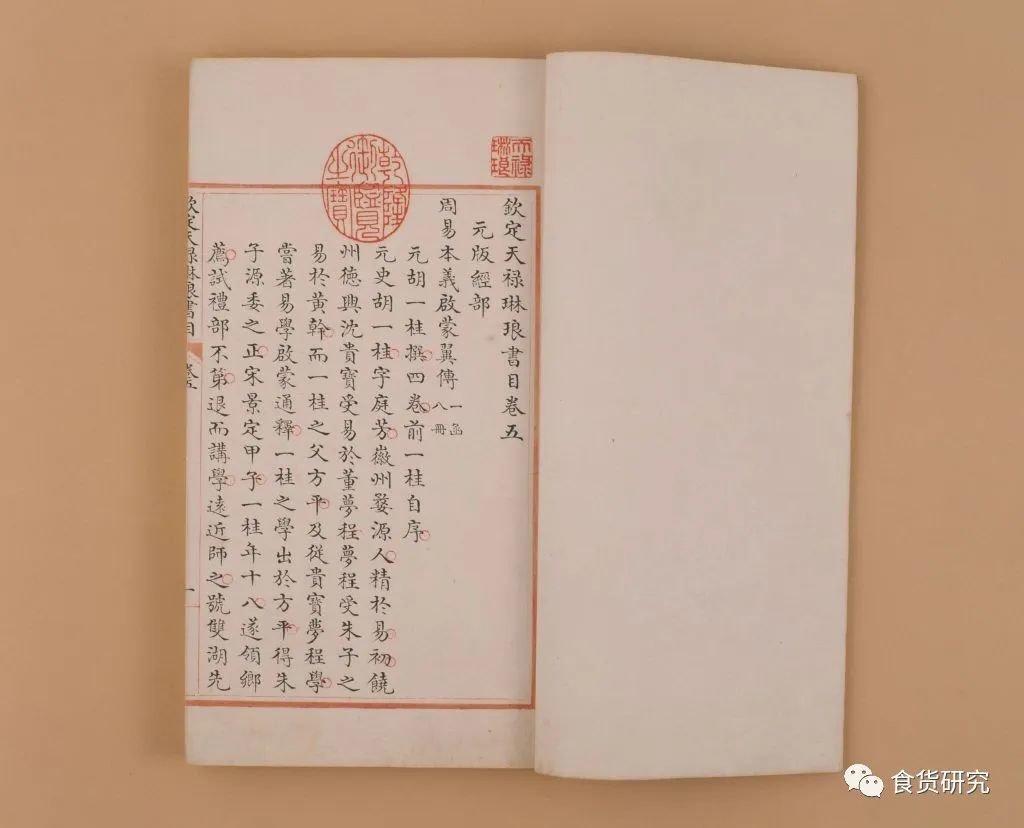 天祿琳琅
乾隆御覽之寶
欽定天祿琳琅書目卷五
元版經部
周易本義啟蒙翼傳 一函八冊
元胡一桂撰四卷前一桂自序
元史胡一桂字庭芳徽州婺源人精於易初饒
州德興沈貴寶受易於董夢程夢程受朱子之
易於黃榦而一桂之父方平及從貴寶夢程學
嘗著易學啟蒙通釋一桂之學出於方平得朱
子源委之正宋景定甲子一桂年十八遂領鄉
薦試禮部不第退而講學遠近師之號雙湖先
欽定天祿琳琅書目 卷五 一
食货研究